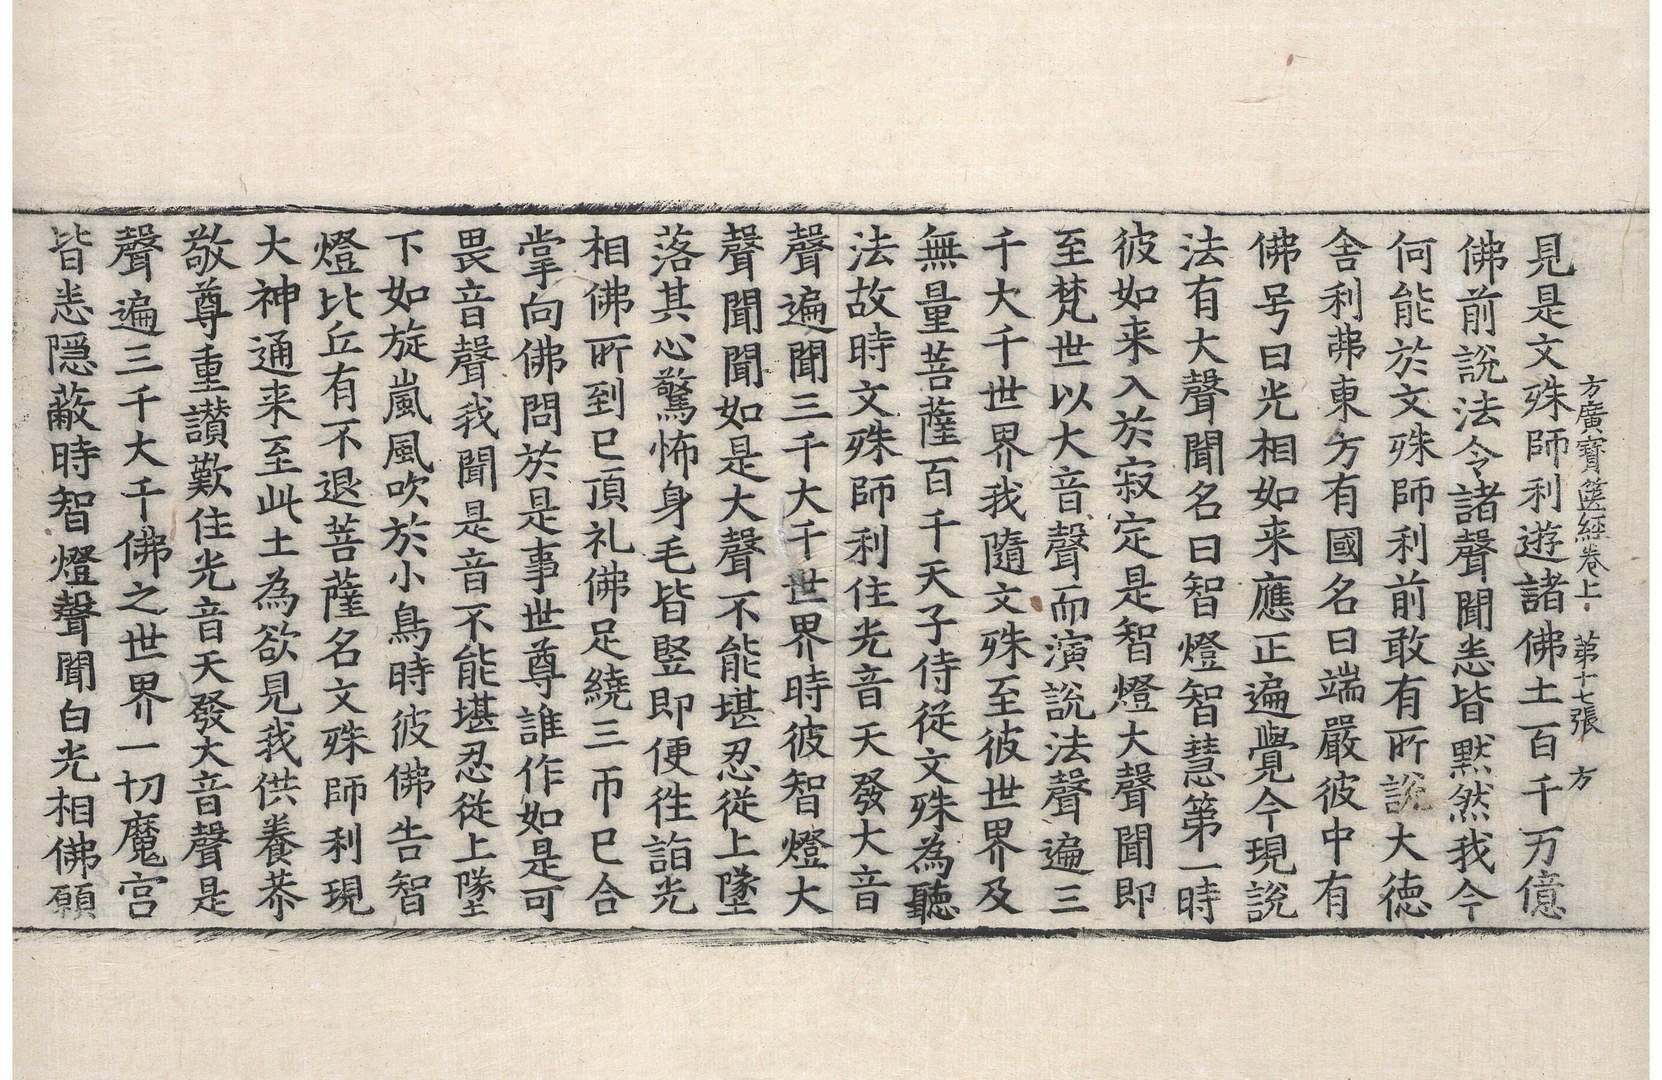 方廣寶篋經卷上 第十七張 方
見是文殊師利遊諸佛土百千万億
佛前說法令諸聲聞悉皆默然我今
何能於文殊師利前敢有所說大德
舍利弗東方有國名曰端嚴彼中有
佛号曰光相如来應正遍覺今現說
法有大聲聞名曰智燈智慧第一時
彼如来入於寂定是智燈大聲聞即
至梵世以大音聲而演說法聲遍三
千大千世界我隨文殊至彼世界及
無量菩薩百千天子侍從文殊為聽
法故時文殊師利住光音天發大音
聲遍聞三千大千世界時彼智燈大
聲聞聞如是大聲不能堪忍從上墜
落其心驚怖身毛皆竪即便徃詣光
相佛所到已頂礼佛足繞三帀已合
掌向佛問於是事世尊誰作如是可
畏音聲我聞是音不能堪忍從上墜
下如旋嵐風吹於小鳥時彼佛告智
燈比丘有不退菩薩名文殊師利現
大神通来至此土為欲見我供養恭
敬尊重讃歎住光音天發大音聲是
聲遍三千大千佛之世界一切魔宫
皆悉隱蔽時智燈聲聞白光相佛願